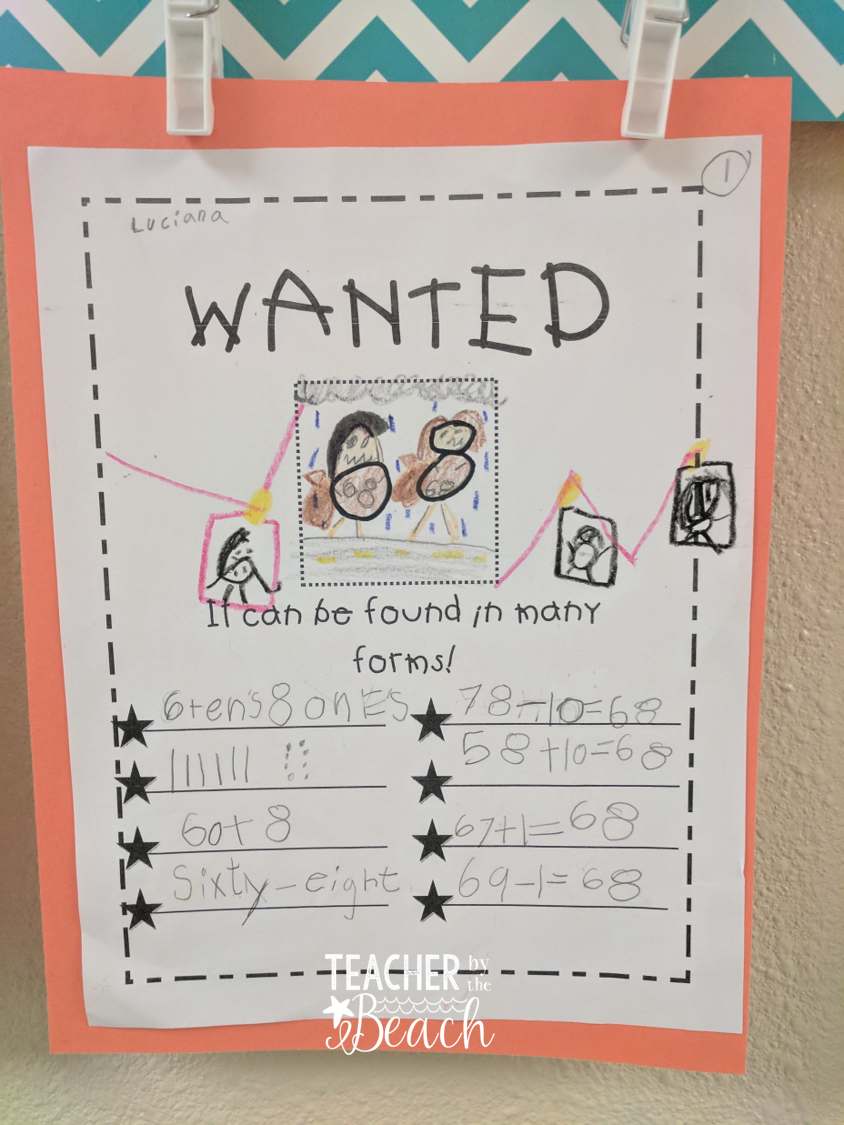 1
Luciana
WANTED
68 68
It can be found in many
forms!
6 ten's 8 onES
78-10=68
58+10=68
60+ 8
67+1=68
Sixty-eight
69-1=68
TEACHER by the
Beach